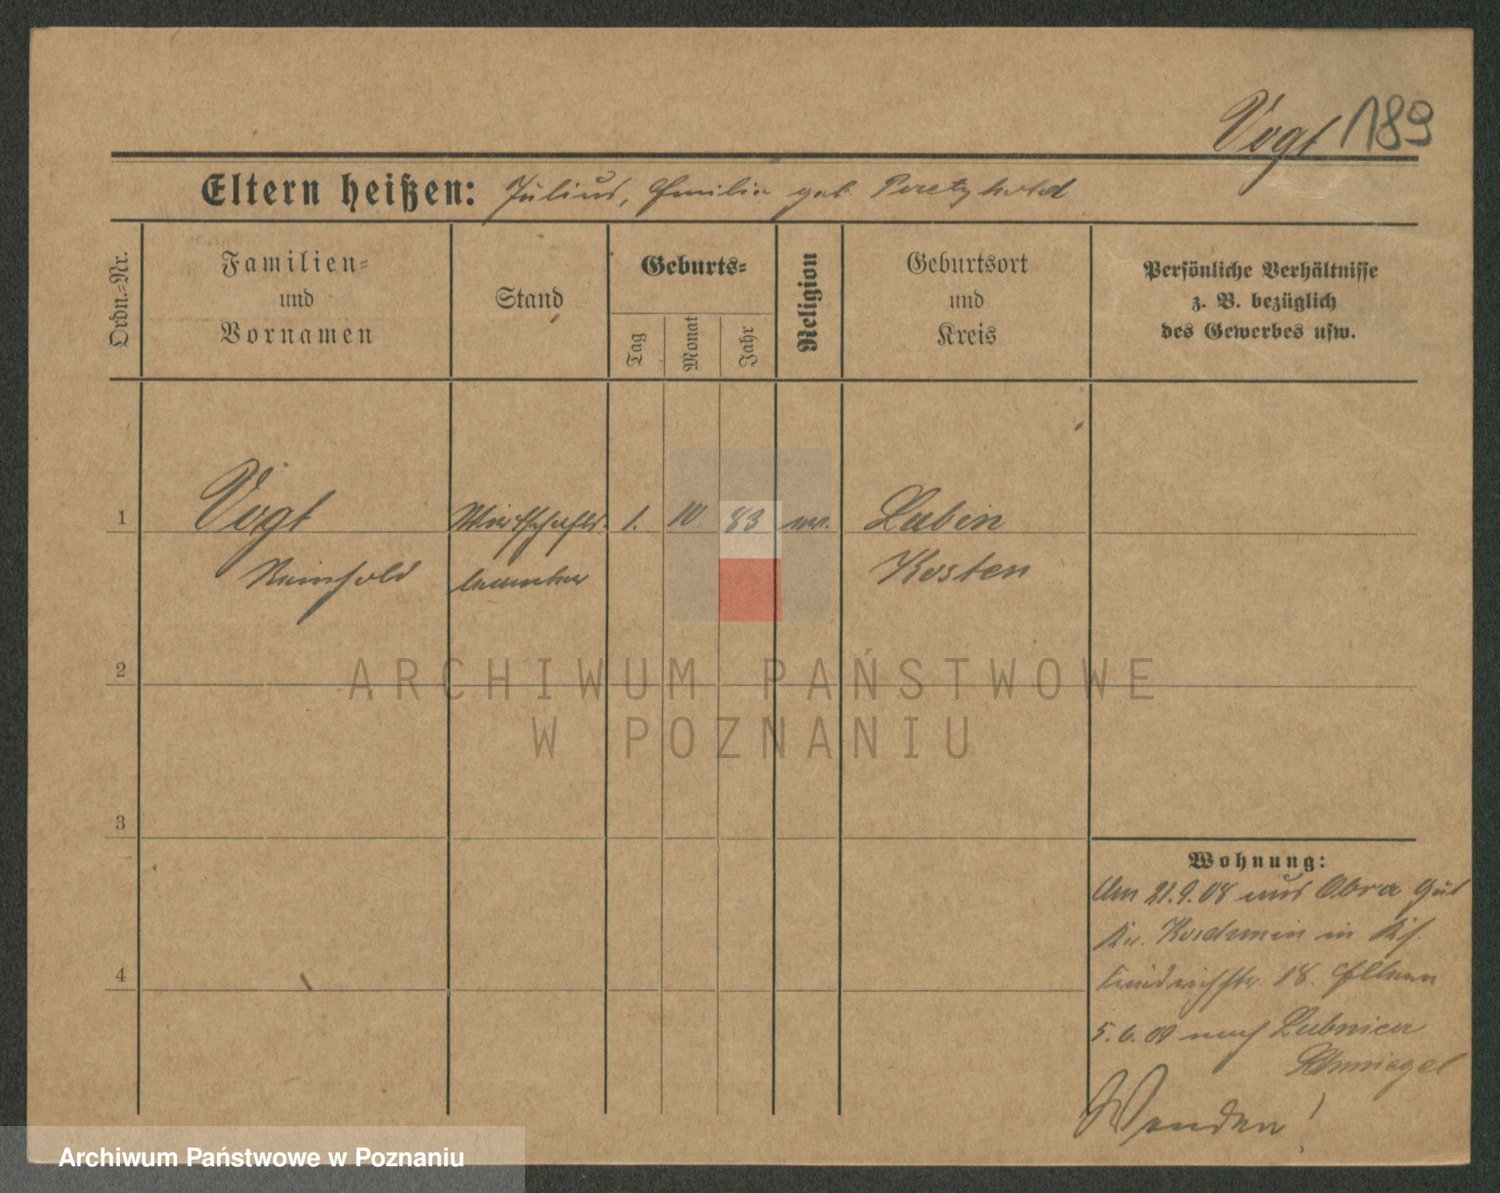 Vogt 189
Eltern heißen: Julius, Emilie geb.
Ordn.-Nr.
Familien-
und
Vornamen
Stand
Geburts-
Tag
Monat
Jahr
Religion
Geburtsort
und
Kreis
Persönliche Verhältnisse
z. B. bezüglich
des Gewerbes usw.
1 Vogt Wirtschafts- 1. 10 83 ev. Lubin
Reinhold beamter Kosten
2
ARCHIWUM PAŃSTWOWE
W POZNANIU
3
Wohnung:
Am 21.9.08 aus Obra Gut
Kr. Koschmin in
4
18. Eltern
5.6.09 nach
Schmiegel
Wenden!
Archiwum Państwowe w Poznaniu